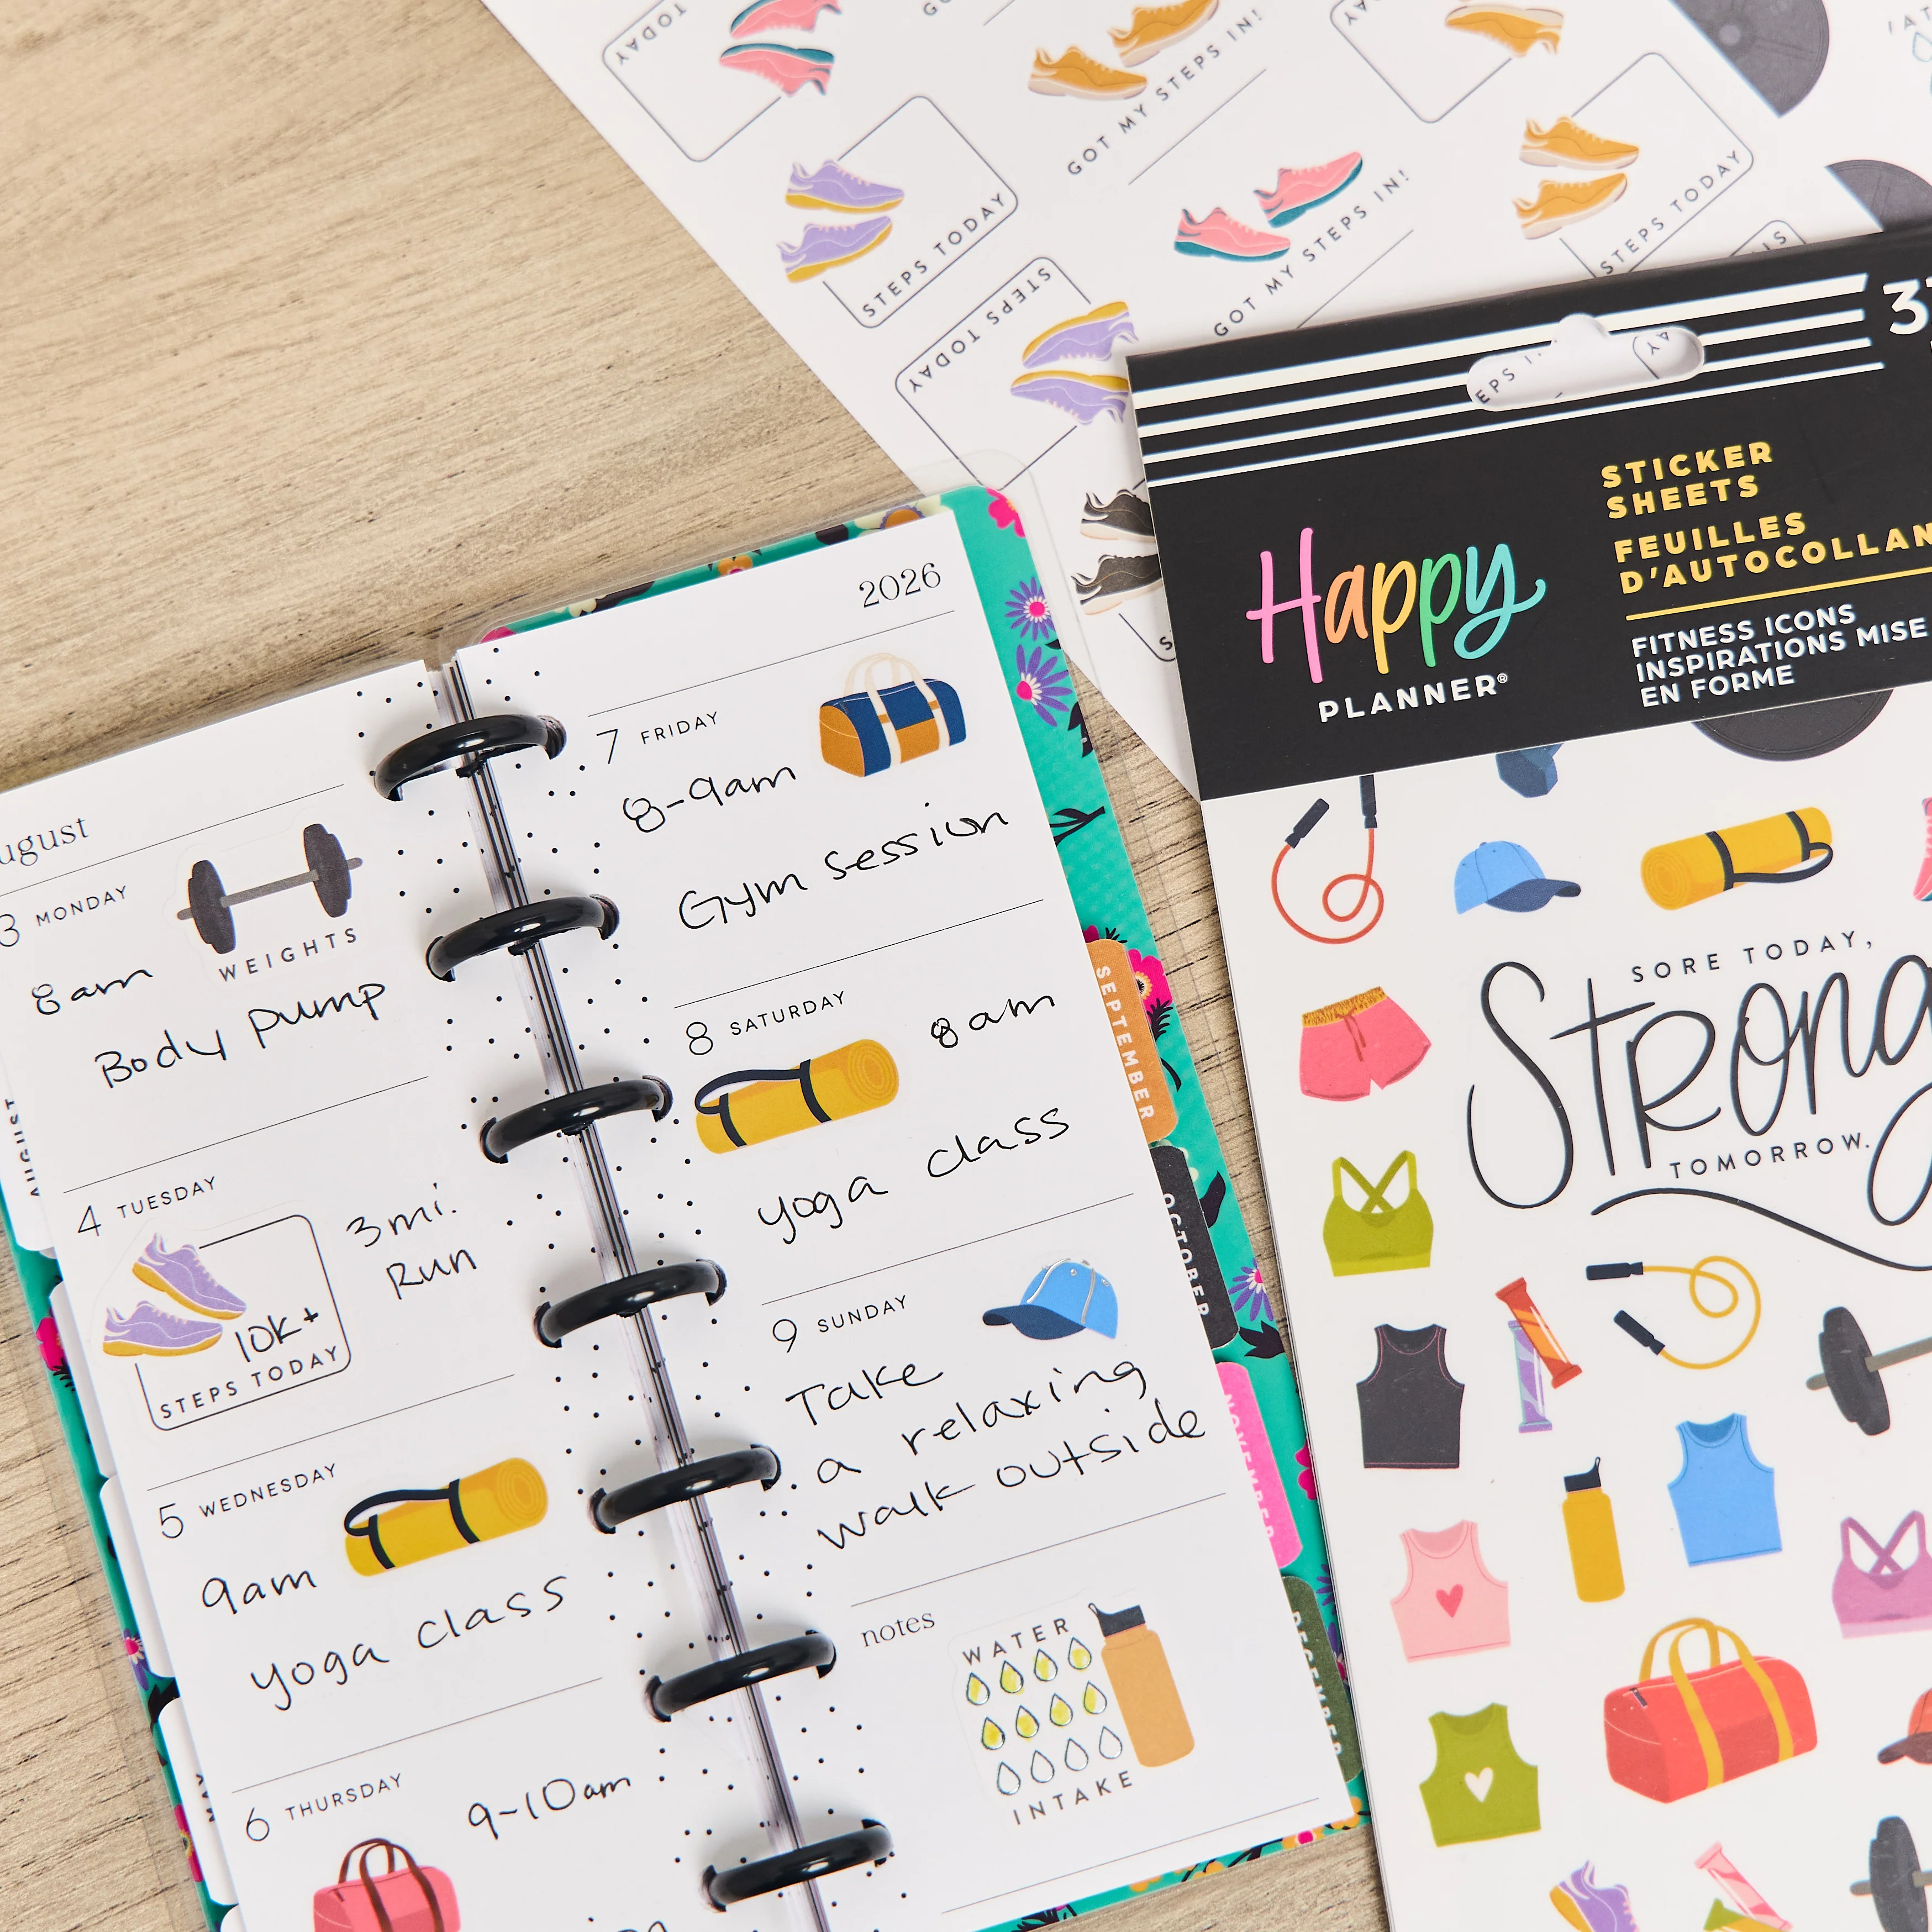 TODAY
GOT MY STEPS IN!
STEPS TODAY
STEPS TODAY
GOT MY STEPS IN!
STEPS TODAY
STICKER
SHEETS
FEUILLES
D'AUTOCOLLAN
FITNESS ICONS
INSPIRATIONS MISE
EN FORME
Happy
PLANNER®
SORE TODAY,
Strong
TOMORROW.
ugust
3 MONDAY
WEIGHTS
8am
Body Pump
4 TUESDAY
3mi.
Run
10K+
STEPS TODAY
5 WEDNESDAY
9am
yoga class
6 THURSDAY
9-10am
2026
7 FRIDAY
8-9am
Gym Session
8 SATURDAY
8am
yoga class
9 SUNDAY
Take
a relaxing
walk outside
notes
WATER
INTAKE
AUGUST
SEPTEMBER
OCTOBER
NOVEMBER
DECEMBER